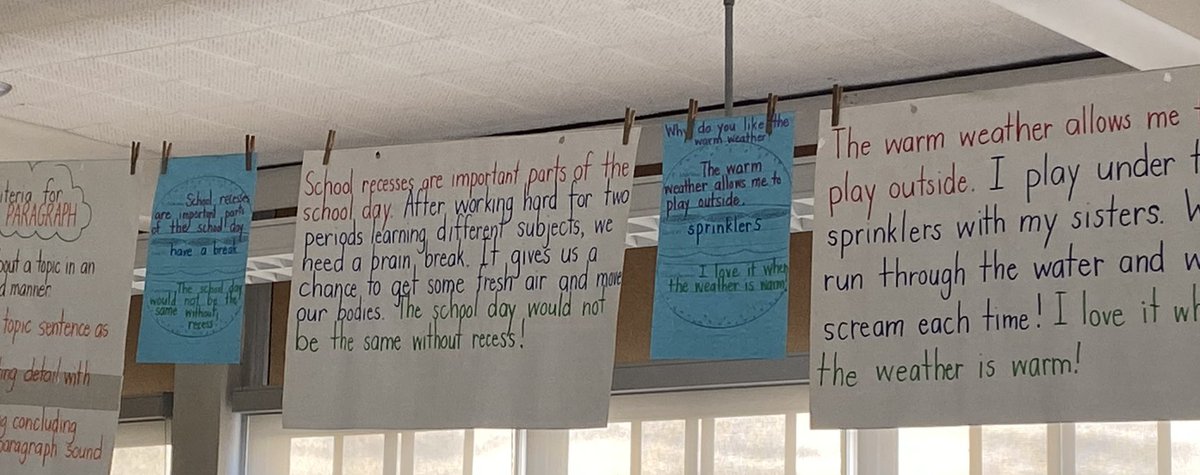 iteria for
PARAGRAPH
out a topic in an
d manner.
topic sentence as
ng detail with
g concluding
paragraph sound
School recesses
are important parts
of the school day
have a break
The school day
would not be the
same without
recess
School recesses are important parts of the
school day. After working hard for two
periods learning different subjects, we
need a brain break. It gives us a
chance to get some fresh air and move
our bodies. The school day would not
be the same without recess!
Why do you like the
warm weather?
The warm
weather allows me to
play outside.
sprinklers
I love it when
the weather is warm!
The warm weather allows me
play outside. I play under
sprinklers with my sisters. W
run through the water and w
scream each time! I love it wh
the weather is warm!